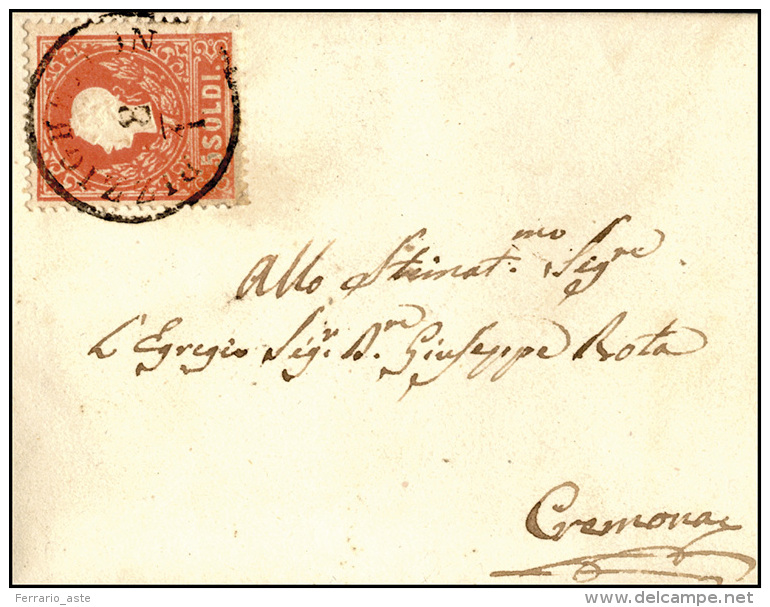 5 SOLDI
PIZZIGHETTON
1
8
Allo Stimat.mo Sigre
L'Egregio Sigr. Dre Giuseppe Rota
Cremona
Ferrario_aste
delcampe.net